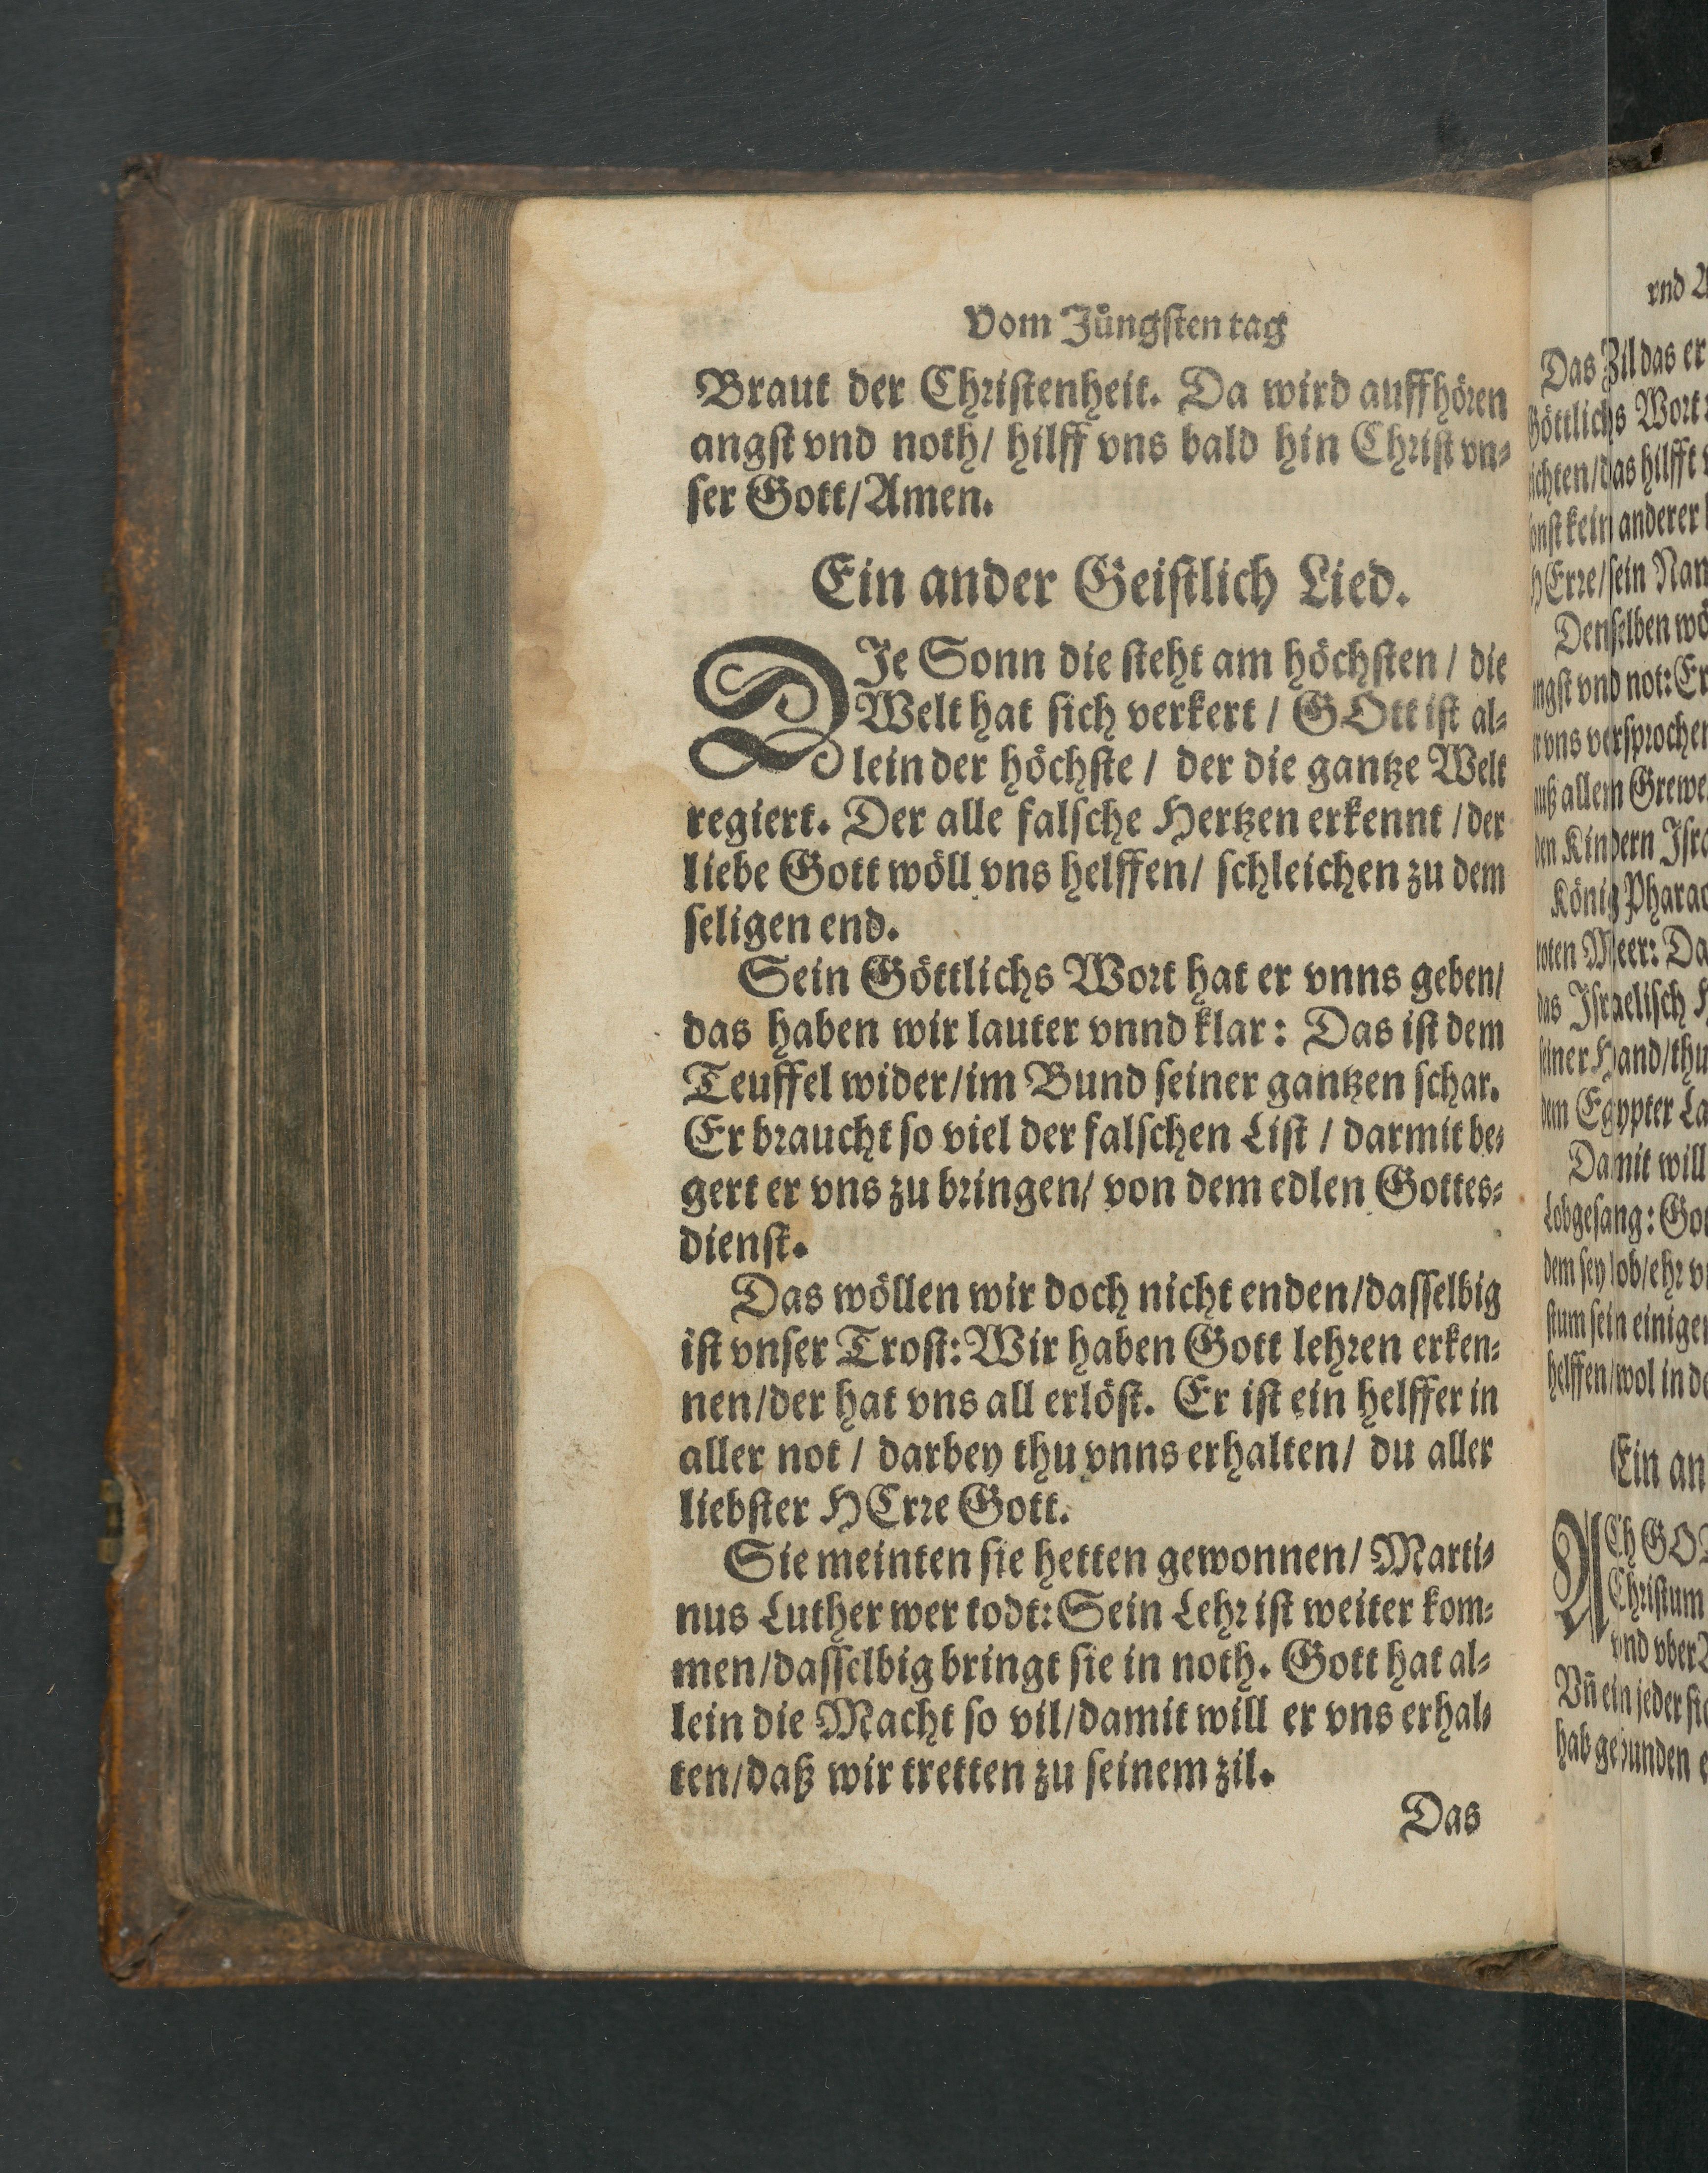 Vom Jüngsten tag
Braut der Christenheit. Da wird auffhören
angst vnd noth/ hilff vns bald hin Christ vn-
ser Gott/Amen.
Ein ander Geistlich Lied.
DIe Sonn die steht am höchsten / die
Welt hat sich verkert / GOtt ist al-
lein der höchste / der die gantze Welt
regiert. Der alle falsche Hertzen erkennt /der
liebe Gott wöll vns helffen/ schleichen zu dem
seligen end.
Sein Göttlichs Wort hat er vnns geben/
das haben wir lauter vnnd klar: Das ist dem
Teuffel wider/im Bund seiner gantzen schar.
Er braucht so viel der falschen List / darmit be-
gert er vns zu bringen/ von dem edlen Gottes-
dienst.
Das wöllen wir doch nicht enden/dasselbig
ist vnser Trost: Wir haben Gott lehren erken-
nen/der hat vns all erlöst. Er ist ein helffer in
aller not / darbey thu vnns erhalten/ du aller
liebster HErre Gott.
Sie meinten sie hetten gewonnen/ Marti-
nus Luther wer todt: Sein Lehr ist weiter kom-
men/dasselbig bringt sie in noth. Gott hat al-
lein die Macht so vil/damit will er vns erhal-
ten/daß wir tretten zu seinem zil.
Das
vnd
Das Zil das er
Göttlichs Wort
das hilfft
kein anderer
HErre/sein
Denselben
vnd not: Er
vns versprochen
auß allem
den Kindern
König
roten Meer:
das Israelisch
seiner Hand/thu
dem Egypter
Damit will
Lobgesang:
dem sey lob/ehr
sein einigen
helffen/wol in
Ein
ACh
Christum
vnd vber
Vñ ein jeder
hab